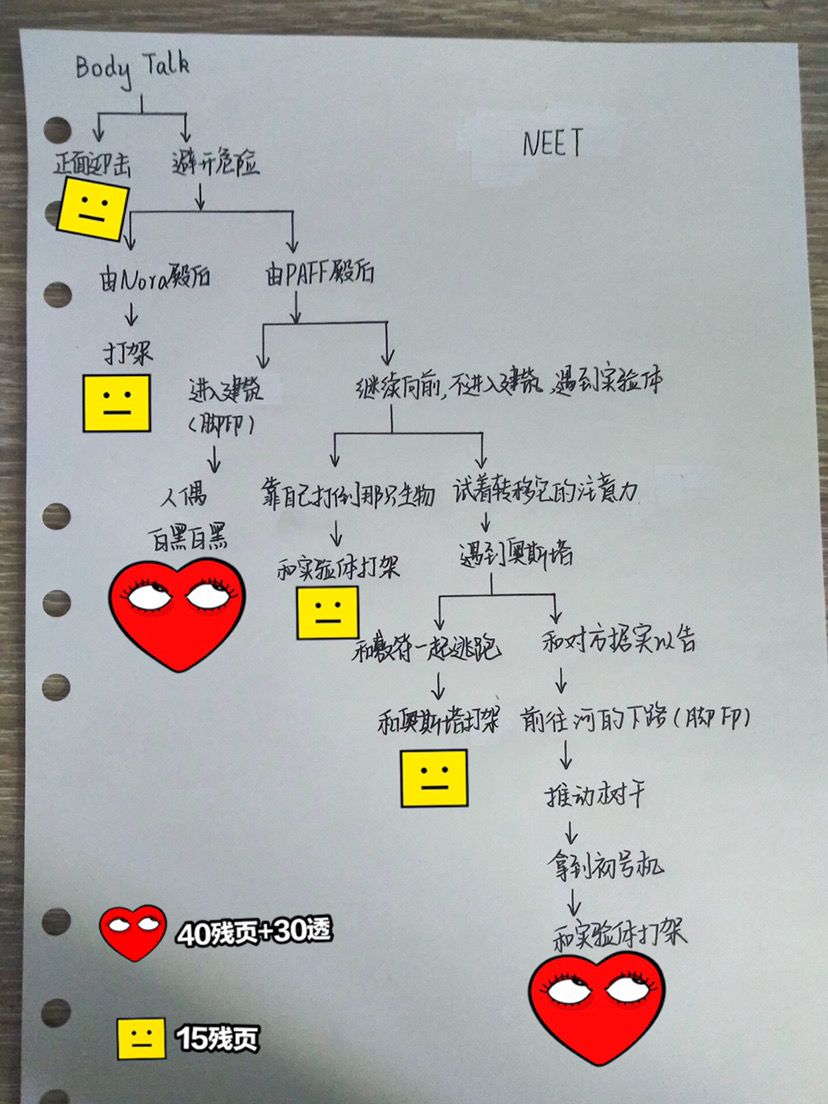 Body Talk
NEET
正面迎击
避开危险
由Nora殿后
由PAFF殿后
打架
进入建筑
(脚印)
继续向前,不进入建筑,遇到实验体
人偶
白黑白黑
靠自己打倒那只生物
试着转移它的注意力
和实验体打架
遇到奥斯塔
和敷衍一起逃跑
和对方据实以告
和奥斯塔打架
前往河的下路(脚印)
推动树干
拿到初号机
和实验体打架
40残页+30透
15残页